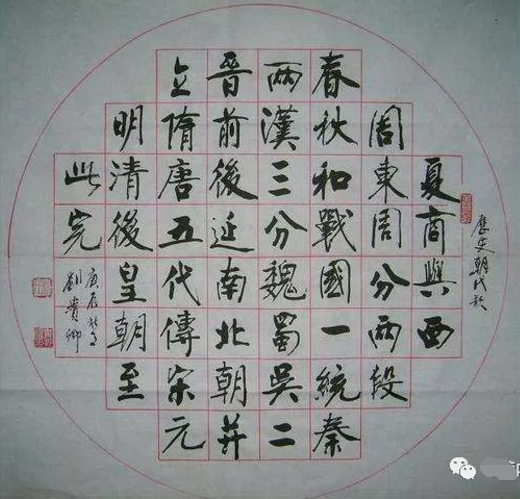 歷史朝代歌
夏商與西
周東周分兩段
春秋和戰國一統秦
兩漢三分魏蜀吳二
晉前後延南北朝并
立隋唐五代傳宋元
明清後皇朝至
此完
庚辰
劉貴卿